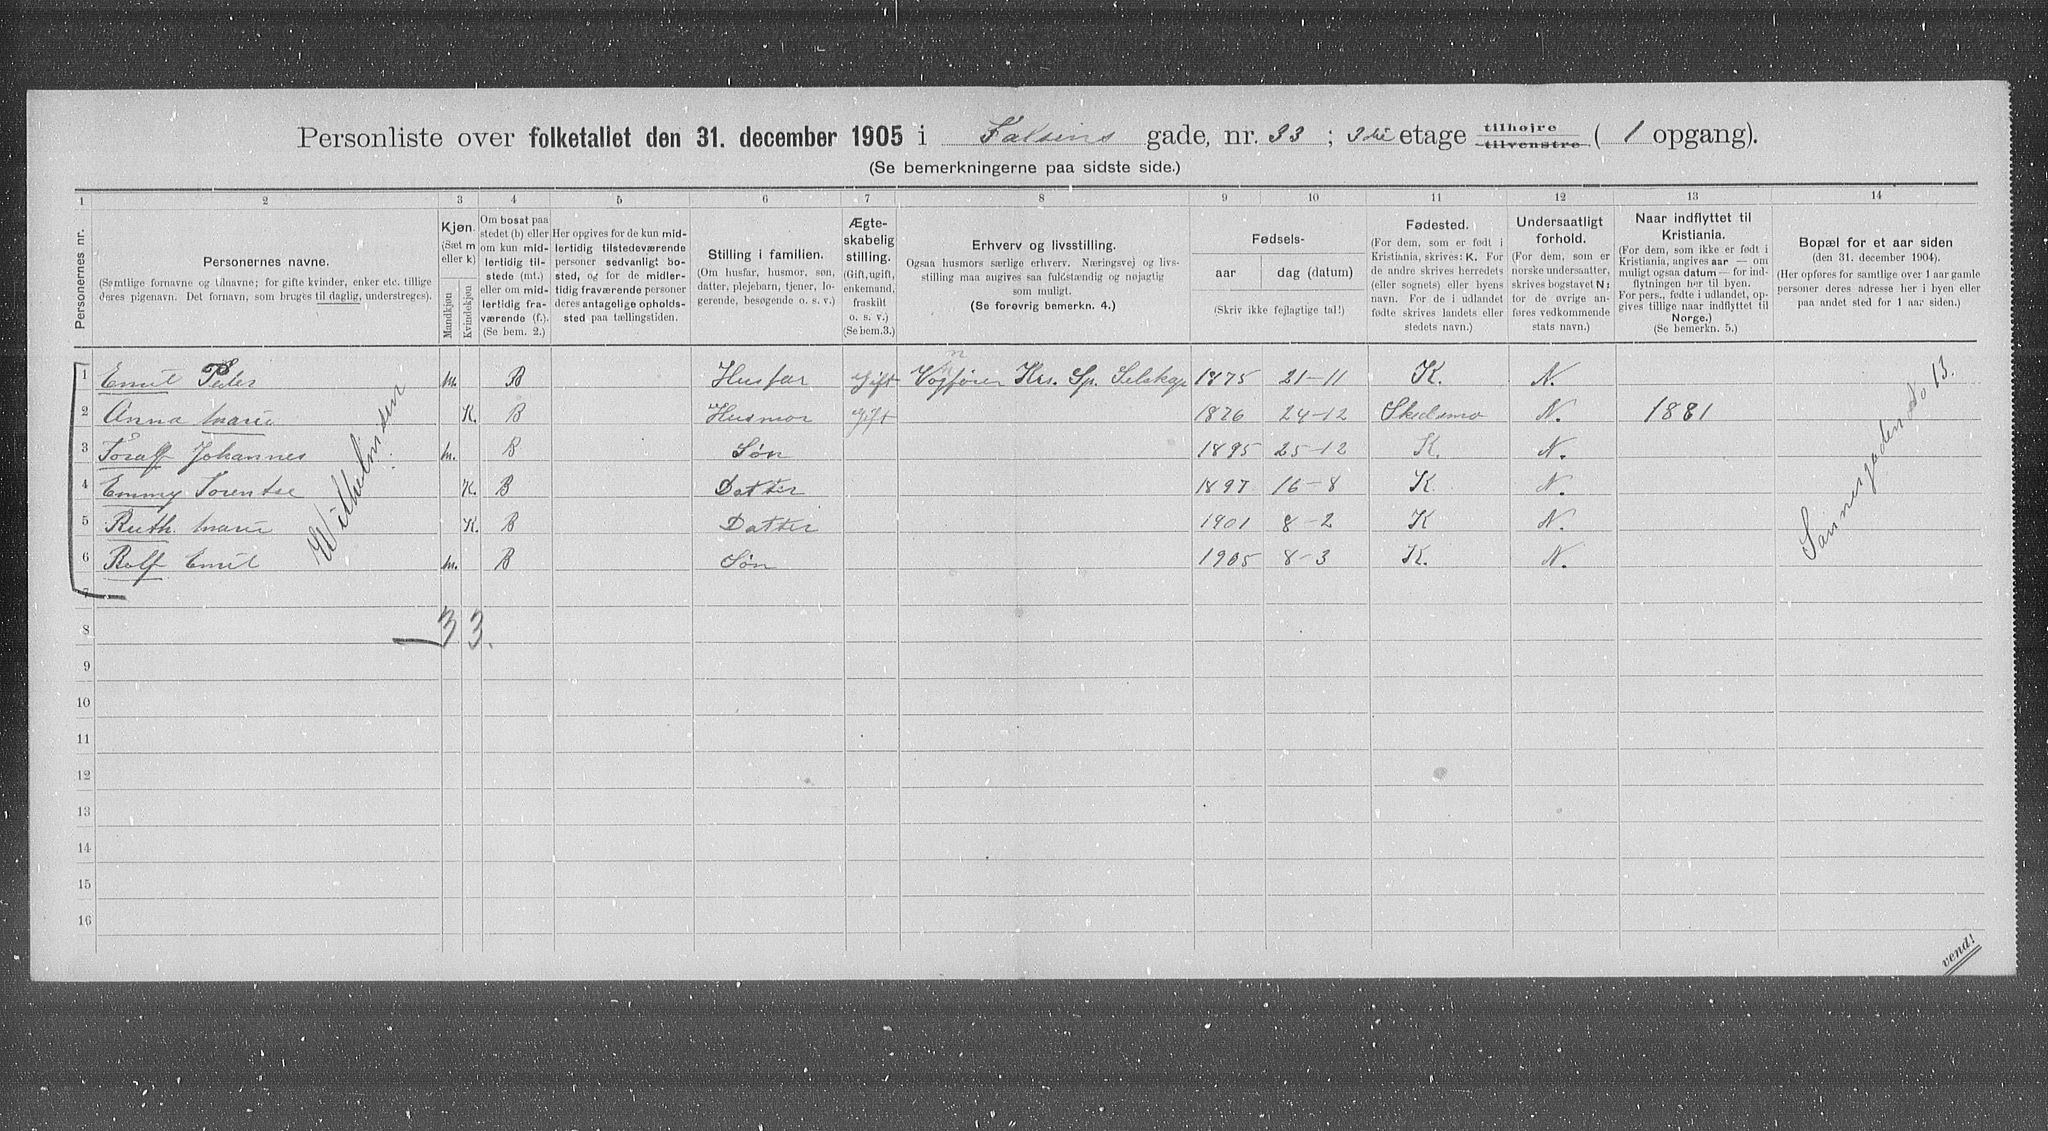 Personliste over folketallet den 31. december 1905 i Falsens gade, nr. 33 ; 3die etage tilhøjre ( 1 opgang).
tilvenstre.
(Se bemerkningerne paa sidste side.)
1 2 3 4 5 6 7 8 9 10 11 12 13 14
Personernes nr.
Personernes navne.
(Samtlige fornavne og tilnavne; for gifte kvinder, enker etc. tillige
deres pigenavn. Det fornavn, som bruges til daglig, understreges).
Kjøn.
(Sæt m
eller k)
Mandkjøn
Kvindekjøn
Om bosat paa
stedet (b) eller
om kun mid-
lertidig til-
stede (mt.)
eller om mid-
lertidig fra-
værende (f.).
(Se bem. 2.)
Her opgives for de kun mid-
lertidig tilstedeværende
personer sedvanligt bo-
sted, og for de midler-
tidig fraværende personer
deres antagelige opholds-
sted paa tællingstiden.
Stilling i familien.
(Om husfar, husmor, søn,
datter, plejebarn, tjener, lo-
gerende, besøgende o. s. v.)
Ægte-
skabelig
stilling.
(Gift, ugift,
enkemand,
fraskilt
o. s. v.)
(Se bem. 3.)
Erhverv og livsstilling.
Ogsaa husmors særlige erhverv. Næringsvej og livs-
stilling maa angives saa fuldstændig og nøjagtig
som muligt.
(Se forøvrig bemerkn. 4.)
Fødsels-
aar
dag (datum)
(Skriv ikke fejlagtige tal!)
Fødested.
(For dem, som er født i
Kristiania, skrives: K. For
de andre skrives herredets
(eller sognets) eller byens
navn. For de i udlandet
fødte skrives landets eller
stedets navn.)
Undersaatligt
forhold.
(For dem, som er
norske undersaatter,
skrives bogstavet N;
for de øvrige an-
føres vedkommende
stats navn.)
Naar indflyttet til
Kristiania.
(For dem, som ikke er født i
Kristiania, angives aar — om
muligt ogsaa datum — for ind-
flytningen her til byen.
For pers., fødte i udlandet, op-
gives tillige naar indflyttet til
Norge.)
(Se bemerkn. 5.)
Bopæl for et aar siden
(den 31. december 1904).
(Her opføres for samtlige over 1 aar gamle
personer deres adresse her i byen eller
paa andet sted for 1 aar siden.)
1 Emil Peder m. B Husfar Gift Vognfører Krs. Sp. Selskap 1875 21-11 K. N.
2 Anna Marie K. B Husmor Gift 1876 24-12 Skedsmo N. 1881
3 Toralf Johannes m. B Søn 1895 25-12 K. N.
4 Emmy Lorentse K. B Datter 1897 16-8 K N.
5 Ruth Marie K. B Datter 1901 8-2 K N.
6 Rolf Emil m. B Søn 1905 8-3 K. N.
Wilhelmsen
Sannergaden No 13.
7
8 3 3.
9
10
11
12
13
14
15
16
vend!